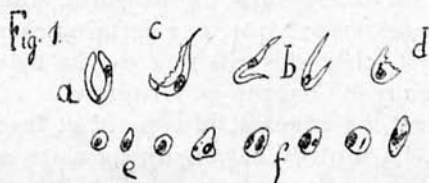 Fig. 1.
a c b d
e f